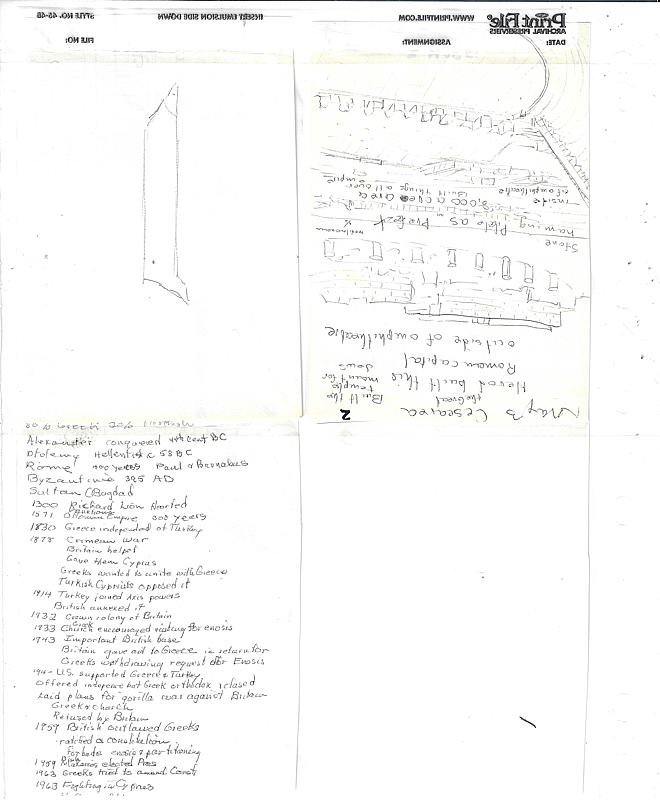 Print File®
ARCHIVAL PRESERVERS
WWW.PRINTFILE.COM
INSERT EMULSION SIDE DOWN
STYLE NO. 45-4B
DATE:
ASSIGNMENT:
FILE NO:
May 3 Cesearea
2
Herod
the Great
built this
Roman capital
Built the
temple
mount for
Jews
outside of amphitheatre
Stone
naming
Pilate as Prefect
inside
of amphitheatre
8,000 acres area
Built things all over
empire
80% Greek 20%
Alexander conquered 4th cent BC
Ptolemy Hellentistic 58 BC
Rome 400 years Paul & Barnabus
Byzantine 395 AD
Sultan (Bagdad
1300 Richard Lion Hearted
1571 Ottoman Empire 300 years
1830 Greece independent of Turkey
1878 Crimean War
Britain helped
Gave them Cyprus
Greeks wanted to unite with Greece
Turkish Cypriots opposed it
1914 Turkey joined Axis powers
British annexed it
1932 Crown colony of Britain
1933 Greek Church encouraged voting for enosis
1943 Important British base
Britain gave aid to Greece in return for
Greeks withdrawing request for Enosis
194- U.S. supported Greece & Turkey
Offered independ but Greek orthodox refused
Laid plans for gorilla war against Britain
Greek church
Refused by Britain
1959 British outlawed Greeks
ratified a constitution
Forbade enosis & partitioning
1959 Makarios elected Pres
1963 Greeks tried to amend Const
1963 Fighting in Cyprus